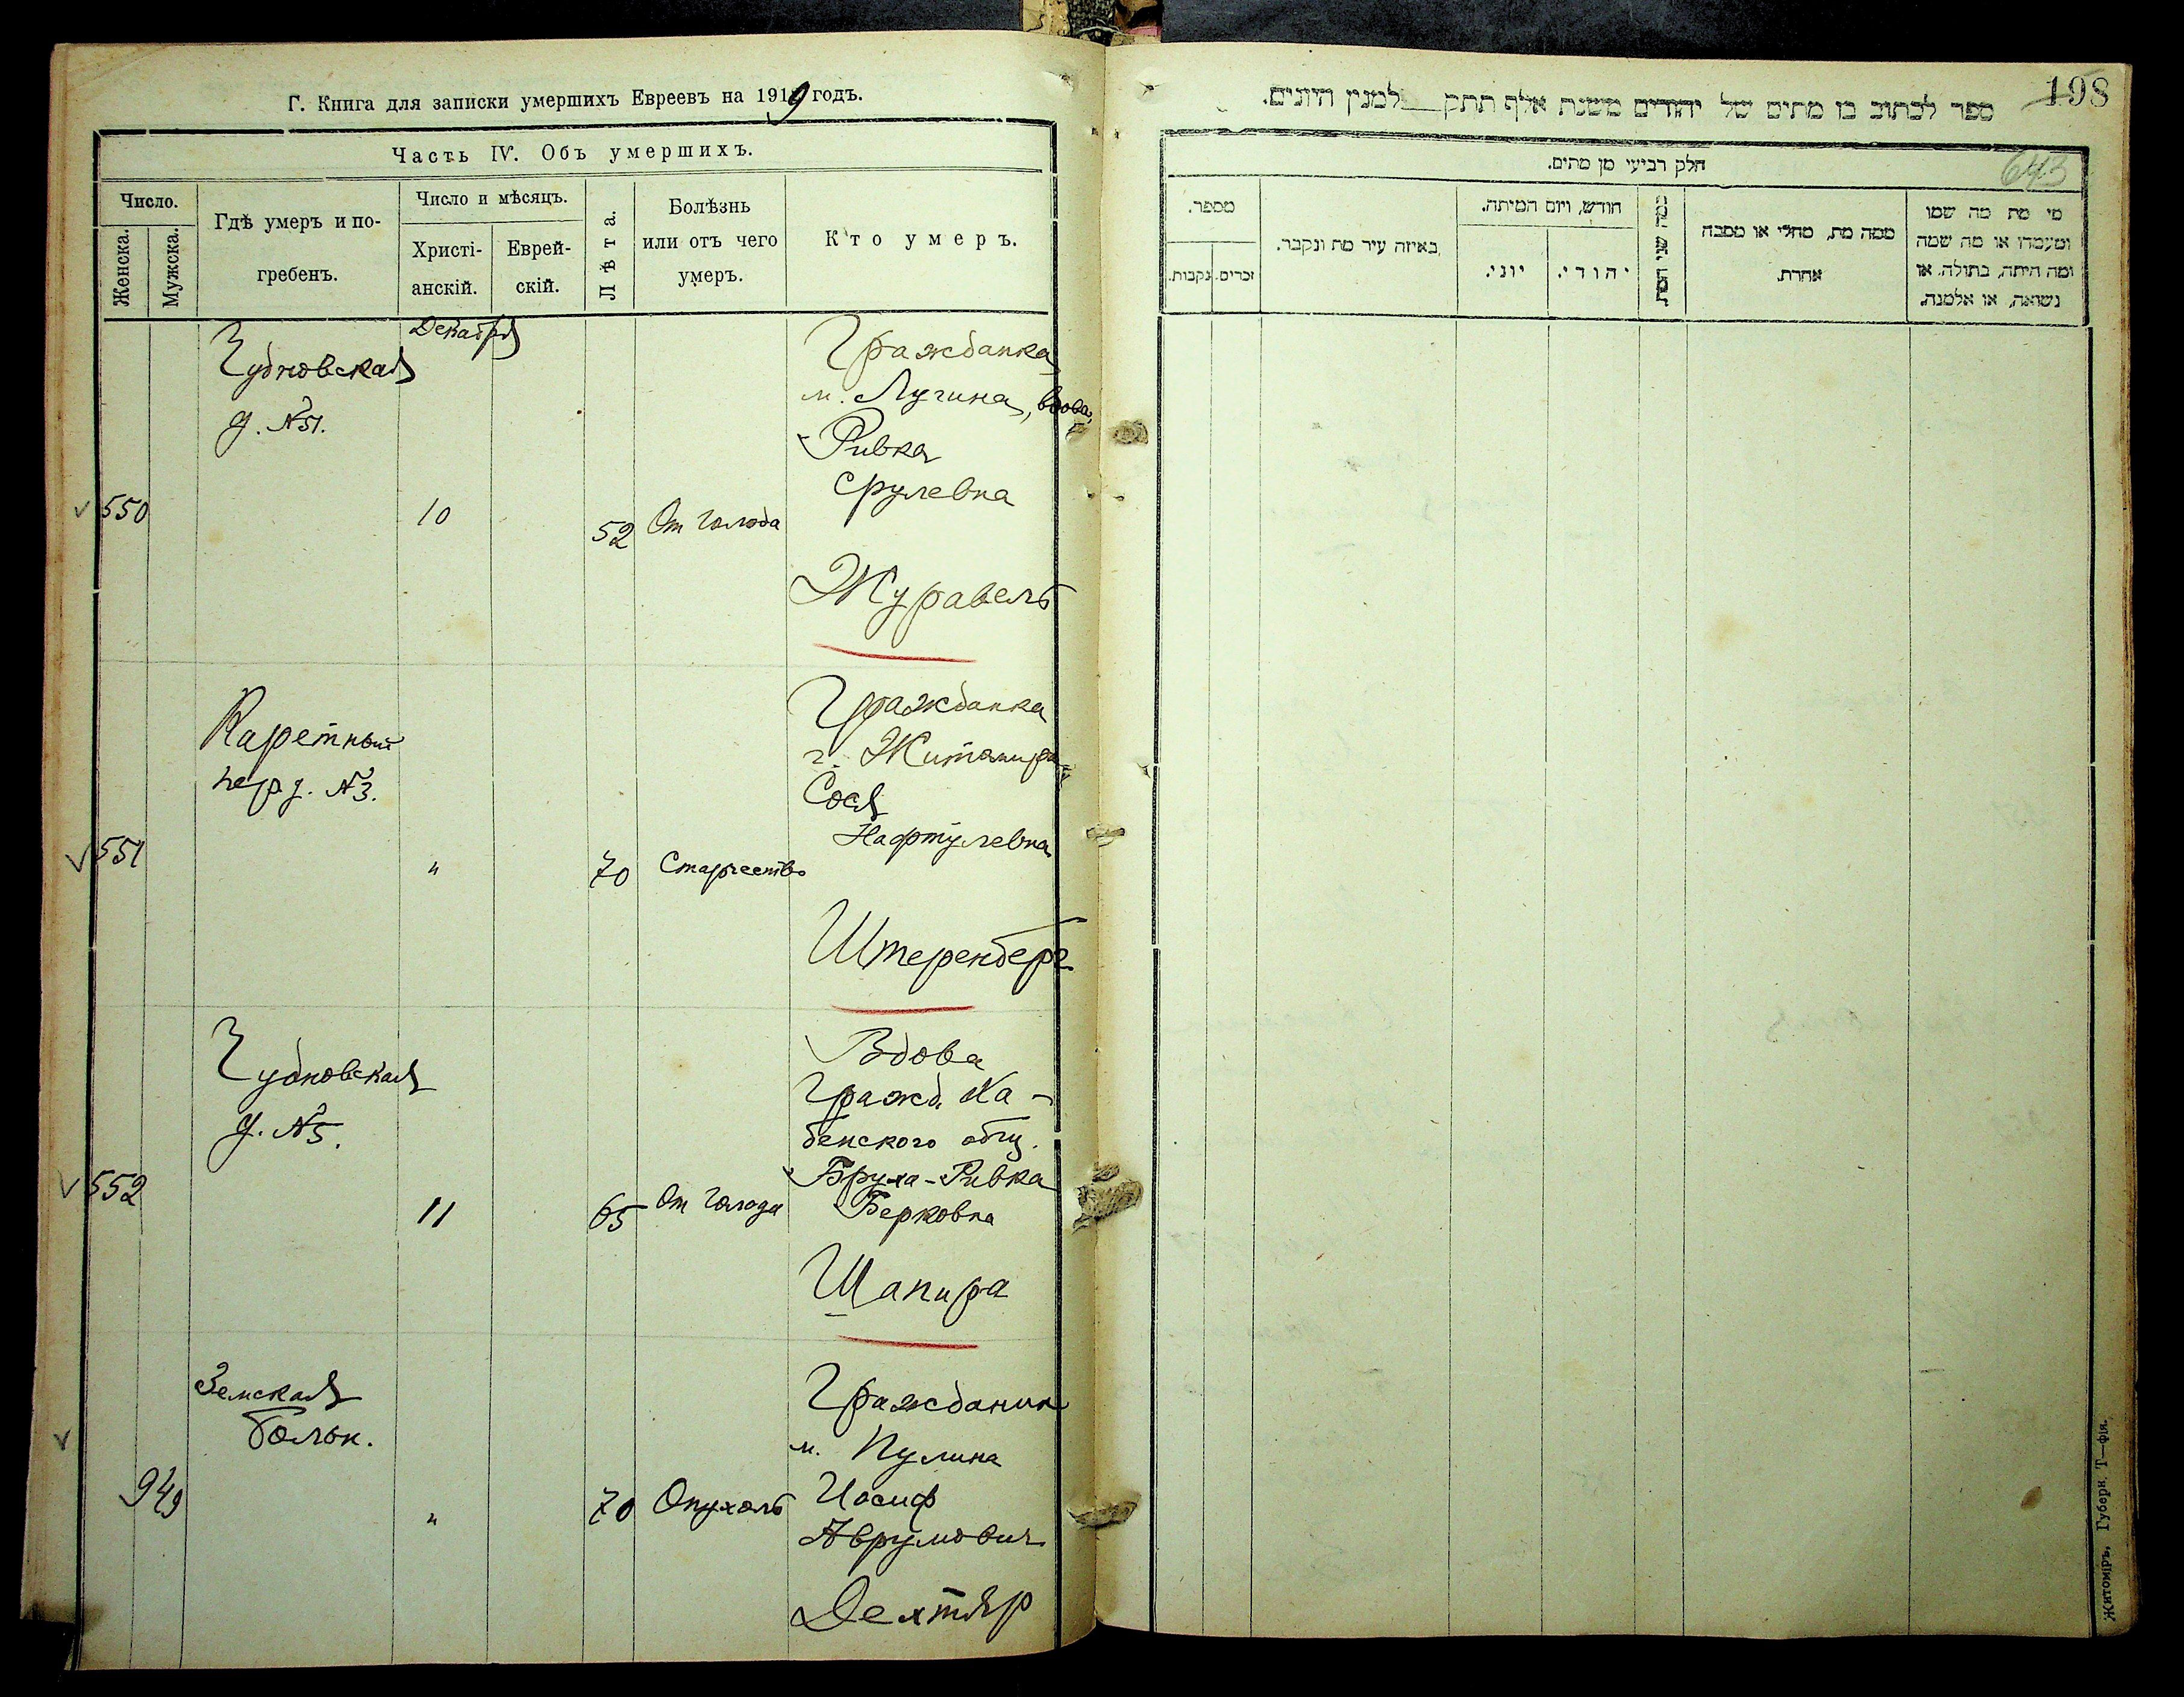 Г. Книга для записки умершихъ Евреевъ на 1919 годъ.
Часть IV. Объ умершихъ.
Число.
Женска.
Мужска.
Гдѣ умеръ и по-
гребенъ.
Число и мѣсяцъ.
Христі-
анскій.
Еврей-
скій.
Лѣта.
Болѣзнь
или отъ чего
умеръ.
Кто умеръ.
Декабря
Чудновская
д. №51.
550
10
52
От голода
Гражданка
м. Лугина, вдова,
Ривка
Срулевна
Журавель
Каретный
пер д. №3.
551
"
70
Старчество
Гражданка
г. Житомира
Сося
Нафтулевна
Штеренберг
Чудновская
д. №5.
552
11
65
От голода
Вдова
Гражд. Ка-
бенского общ.
Бруха-Ривка
Берковна
Шапира
Земская
больн.
949
"
70
Опухоль
Гражданин
м. Пулина
Иосиф
Аврумович
Дехтяр
198
643
ספר לכתוב בו מתים של יהודים משנת אלף תתק__למנין היונים.
חלק רביעי מן מתים.
מספר.
נקבות.
זכרים.
באיזה עיר מת ונקבר.
חודש, ויום המיתה.
יוני.
יהודי.
ממה מת, מחלי או מסבה
אחרת.
מי מת מה שמו
ומעמדו או מה שמה
ומה היתה, בתולה, או
נשואה, או אלמנה.
Житоміръ, Губерн. Т—фія.